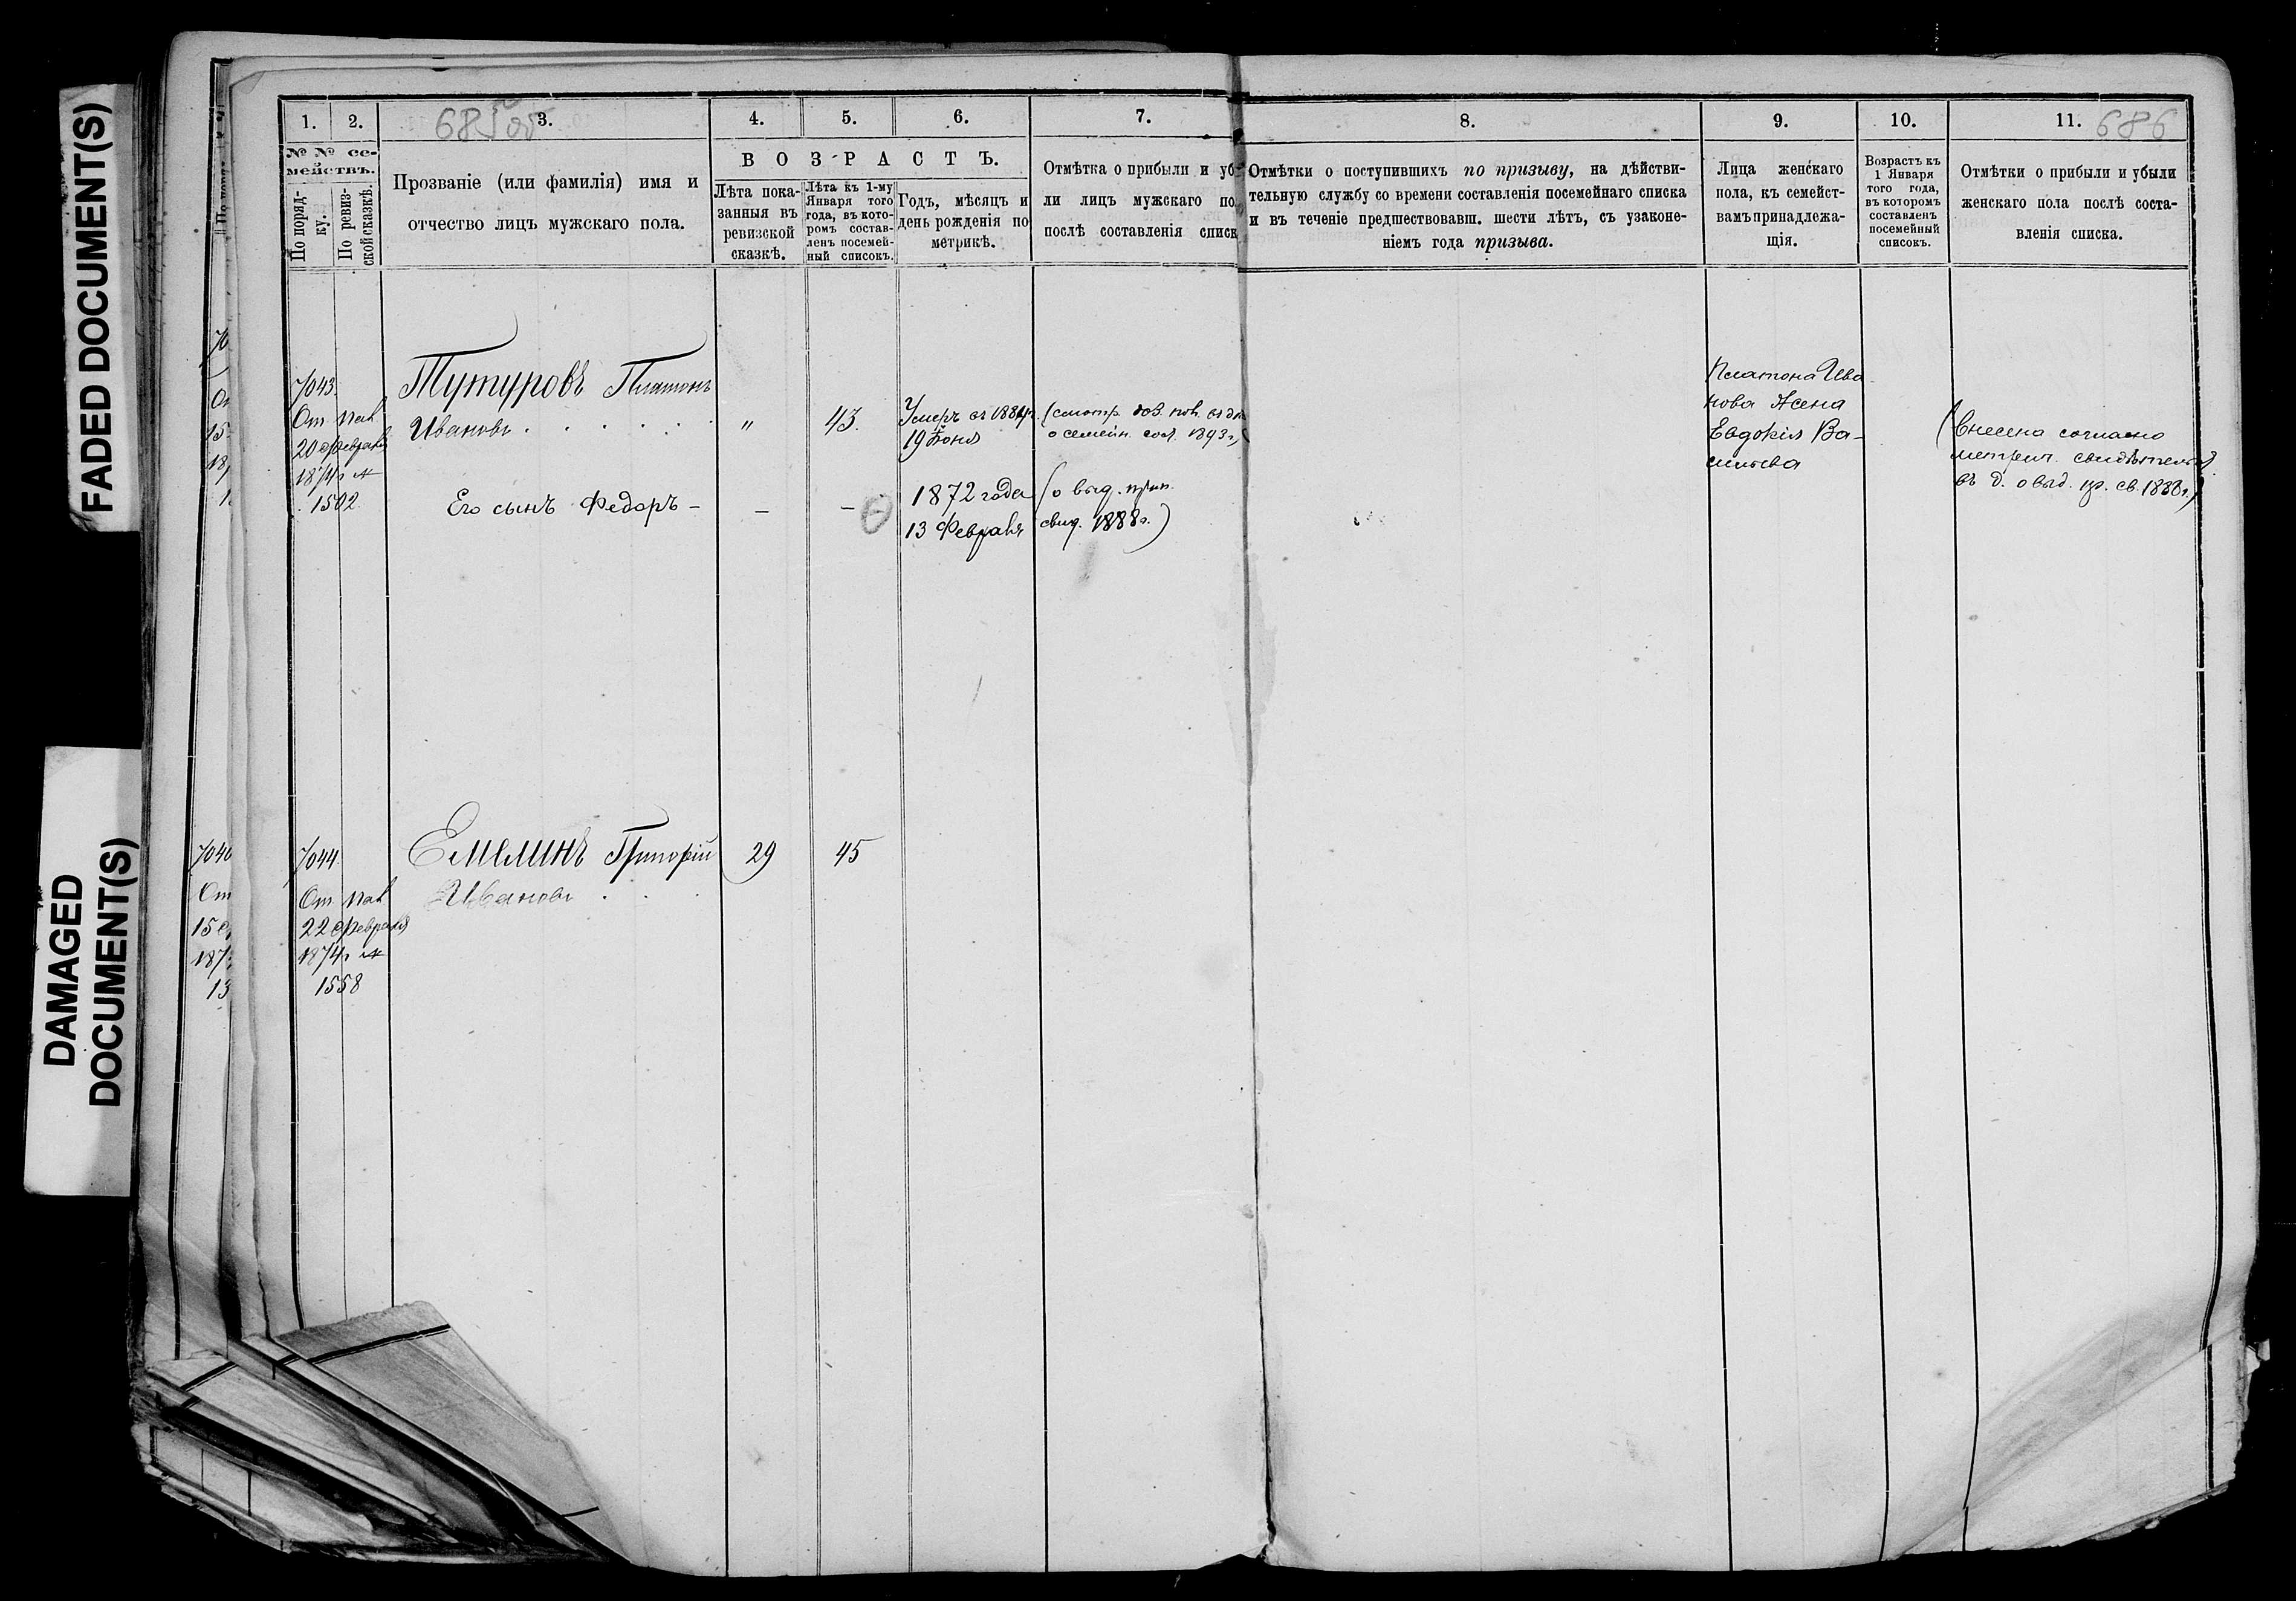 FADED DOCUMENT(S)
DAMAGED
DOCUMENT(S)
685 об
686
1.
2.
3.
4.
5.
6.
7.
8.
9.
10.
11.
№ № се-
мействъ.
По поряд-
ку.
По ревиз-
ской сказкѣ.
Прозваніе (или фамилія) имя и
отчество лицъ мужскаго пола.
ВОЗРАСТЪ.
Лѣта пока-
занныя въ
ревизской
сказкѣ.
Лѣта къ 1-му
Января того
года, въ кото-
ромъ состав-
ленъ посемей-
ный списокъ.
Годъ, мѣсяцъ и
день рожденія по
метрикѣ.
Отмѣтка о прибыли и уб-
ли лицъ мужскаго по
послѣ составленія списк
Отмѣтки о поступившихъ по призыву, на дѣйстви-
тельную службу со времени составленія посемейнаго списка
и въ теченіе предшествовавш. шести лѣтъ, съ узаконе-
ніемъ года призыва.
Лица женскаго
пола, къ семейст-
вамъ принадлежа-
щія.
Возрастъ къ
1 Января
того года,
въ которомъ
составленъ
посемейный
списокъ.
Отмѣтки о прибыли и убыли
женскаго пола послѣ соста-
вленія списка.
7043.
От. пал
20 Февраля
1874 г №
1502.
Тутуровъ Платонъ
Ивановъ . . . . . .
"
43.
Умеръ въ 1884 г.
19 Іюня
о семейн. сост. 1893 г.)
Его сынъ Федоръ –
–
–
1872 года
13 Февраля
(о выд. прип.
свид. 1888 г.)
Платона Ива
нова Жена
Евдокія Ва-
сильева
(Внесена согласно
метрич. свидѣтельст
въ д. о выд. пр. св. 1888 г.)
7044.
От. пал
22 Февраля
1874 г №
1558
Емелинъ Григорій
Ивановъ . . .
29
45
7040
От
15
187
13